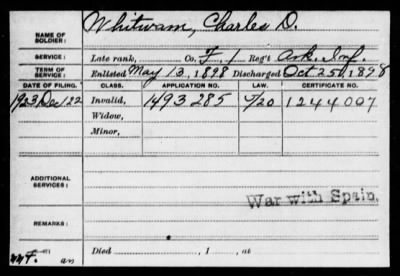 Whitwam, Charles D.
NAME OF SOLDIER:
SERVICE: Late rank, Co. F, 1 Reg't Ark. Inf.
TERM OF SERVICE: Enlisted May 13, 1898 Discharged Oct 25, 1898
DATE OF FILING. CLASS. APPLICATION NO. LAW. CERTIFICATE NO.
1923 Dec 22 Invalid, 1493285 1244007
Widow,
Minor,
ADDITIONAL SERVICES:
War with Spain.
REMARKS:
Died , 1 , at